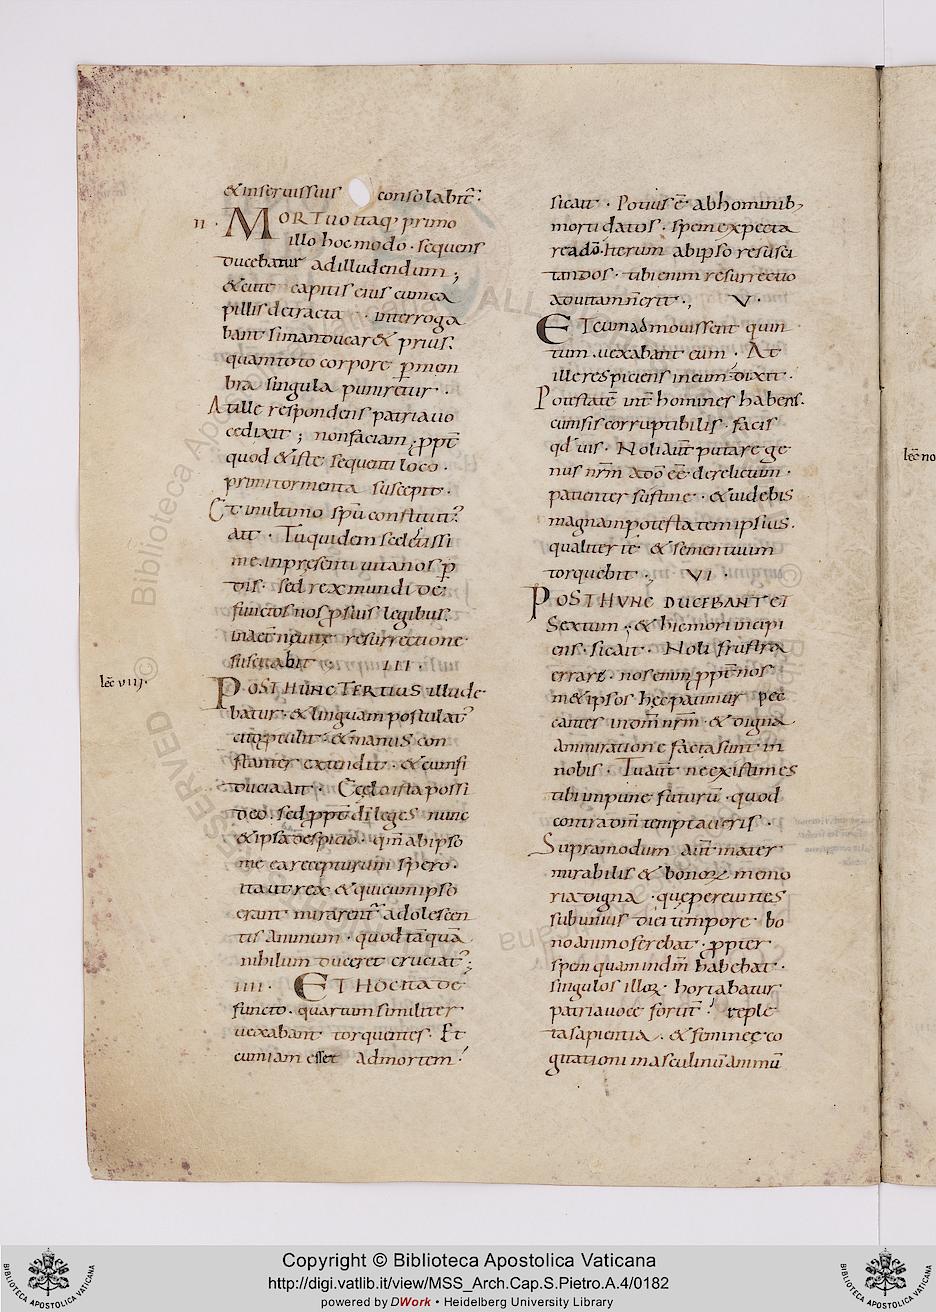 &inseruissuis consolabit̄.
II.
MORTUO itaq; primo
illo hoc modo. sequens
ducebatur adilludendum;
&cute capitis eius cumca
pillis detracta. interroga
bant simanducar& prius.
quamtoto corpore p̄mem
bra singula puniretur.
Atille respondens patriauo
cedixit; nonfaciam. ꝓpt̄
quod &iste sequenti loco.
primi tormenta suscepit.
Et inultimo sp̄u constituti?
ait. Tuquidem scelestissi
me. inpresenti uita nos p̄
dis. sed rex mundi de
functos nos ꝓsuis legibus.
resurrectione
suscitabit. III.
POST HUNC TERTIUS illude
batur. &linguam postulat?
cito ꝓtulit. &manus con
stanter extendit. &cumfi
ducia ait. Ecęlo ista possi
deo. sed ꝓpt̄ di leges nunc
&ipsa despicio. qm̄ abipso
me ea recepturum spero.
ita ut rex &quicumipso
erant mirarent̄ adolescen
tis animum. quod tāquā
nihilum duceret cruciat?;
IIII. ET HOC ITA DE
functo. quartum similiter
uexabant torquentes. Et
cum iam esset admortem.
sicait. Potius ē abhominib;
morti datos. spem expecta
re adō. iterum abipso resusci
tandos. tibi enim resurrectio
aduitam n̄ erit. V.
ET cum admouissent quin
tum. uexabant eum. At
ille respiciens in eum dixit.
Potestatē int̄ homines habens.
cumsis corruptibilis. facis
qd̄ uis. Noli aut̄ putare ge
nus nr̄m adō eē derelictum.
patienter sustine. &uidebis
magnampotestatem ipsius.
qualiter te &sementuum
torquebit. VI.
POST HUNC DUCEBANT ET
Sextum. &hic mori incipi
ens. sicait. Noli frustra
errare. nos enim ꝓpt̄ nos
m&ipsos hęc patimur pec
cantes indm̄ nr̄m. &digna
ammiratione facta sunt in
nobis. Tu aut̄ ne existimes
tibi impune futurū. quod
contra dm̄ temptaueris.
Supramodum aut̄ mater
mirabilis &bonoꝝ memo
ria digna. quę pereuntes
subunius diei tempore. bo
no animo ferebat. ꝓpter
spem quam indm̄ habebat.
singulos illoꝝ hortabatur
patria uoce fortit̄. reple
ta sapientia. &femineę co
gitationi masculinū animū
lec̄ VIII.
lec̄ no
Copyright © Biblioteca Apostolica Vaticana
http://digi.vatlib.it/view/MSS_Arch.Cap.S.Pietro.A.4/0182
powered by DWork • Heidelberg University Library